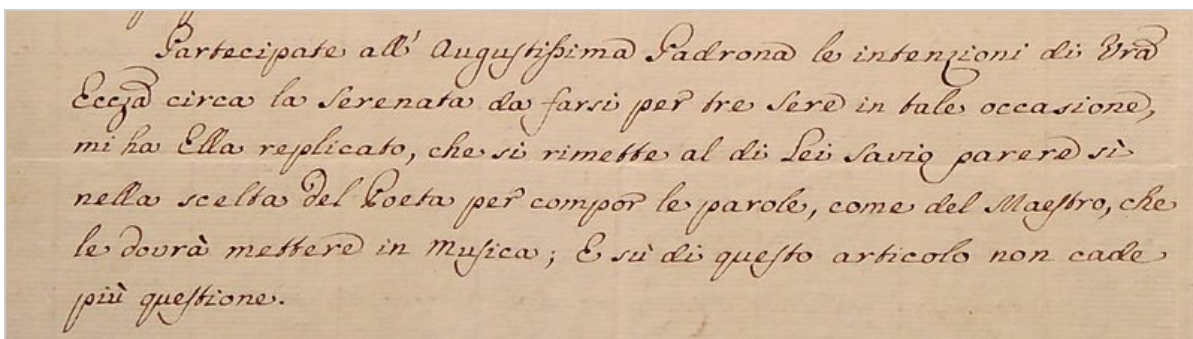 Partecipate all' Augustissima Padrona le intenzioni di Vrã
Ecczã circa la Serenata da farsi per tre sere in tale occasione,
mi ha Ella replicato, che si rimette al di Lei Savio parere sì
nella scelta del Poeta per compor le parole, come del Maestro, che
le dovrà mettere in Musica; E sù di questo articolo non cade
più questione.